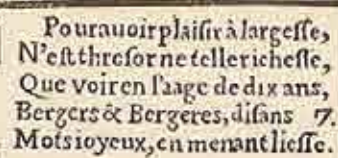 Pourauoir plaisir à largesse,
N'est thresor ne telle richesse,
Que voir en l'aage de dix ans,
Bergers & Bergeres, disans 7.
Mots ioyeux, en menant liesse.